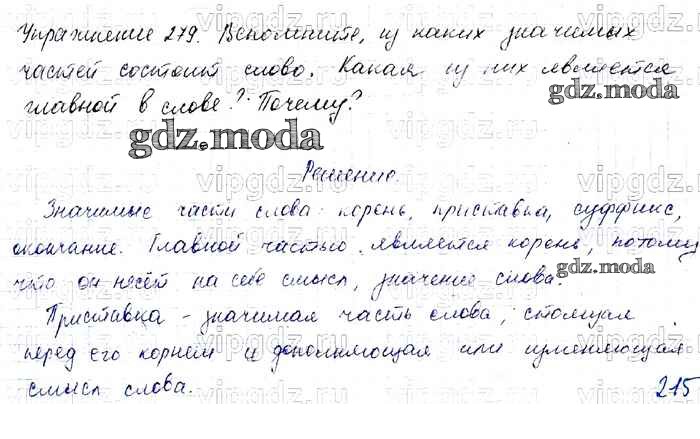 Упражнение 279. Вспомните, из каких значимых
частей состоит слово. Какая из них является
главной в слове? Почему?
gdz.moda
gdz.moda
Решение.
Значимые части слова: корень, приставка, суффикс,
окончание. Главной частью является корень, потому
что он несёт на себе смысл, значение слова.
gdz.moda
Приставка - значимая часть слова, стоящая
перед его корнем и дополняющая или изменяющая
смысл слова.
215